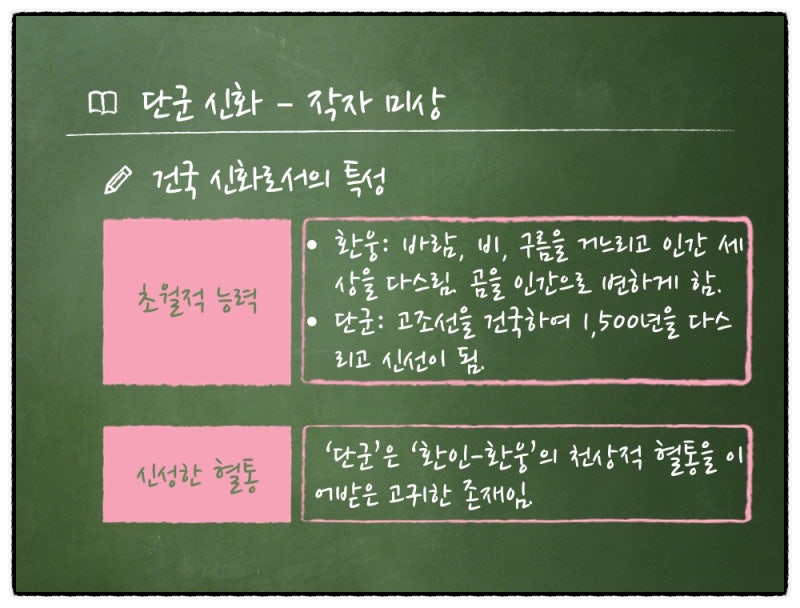 단군 신화 - 작자 미상
건국 신화로서의 특성
초월적 능력
• 환웅: 바람, 비, 구름을 거느리고 인간 세
상을 다스림. 곰을 인간으로 변하게 함.
• 단군: 고조선을 건국하여 1,500년을 다스
리고 신선이 됨.
신성한 혈통
‘단군’은 ‘환인-환웅’의 천상적 혈통을 이
어받은 고귀한 존재임.